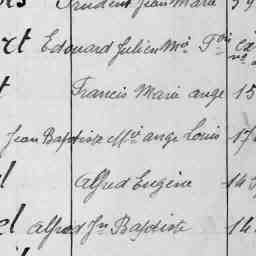 Prudent Jean Marie
rt Edouard Julien Mie Fois
t Francis Marie ange 15
Jean Baptiste Mie ange Louis 17
l Alfred Eugène 14
el Alfred Jn Baptiste 14